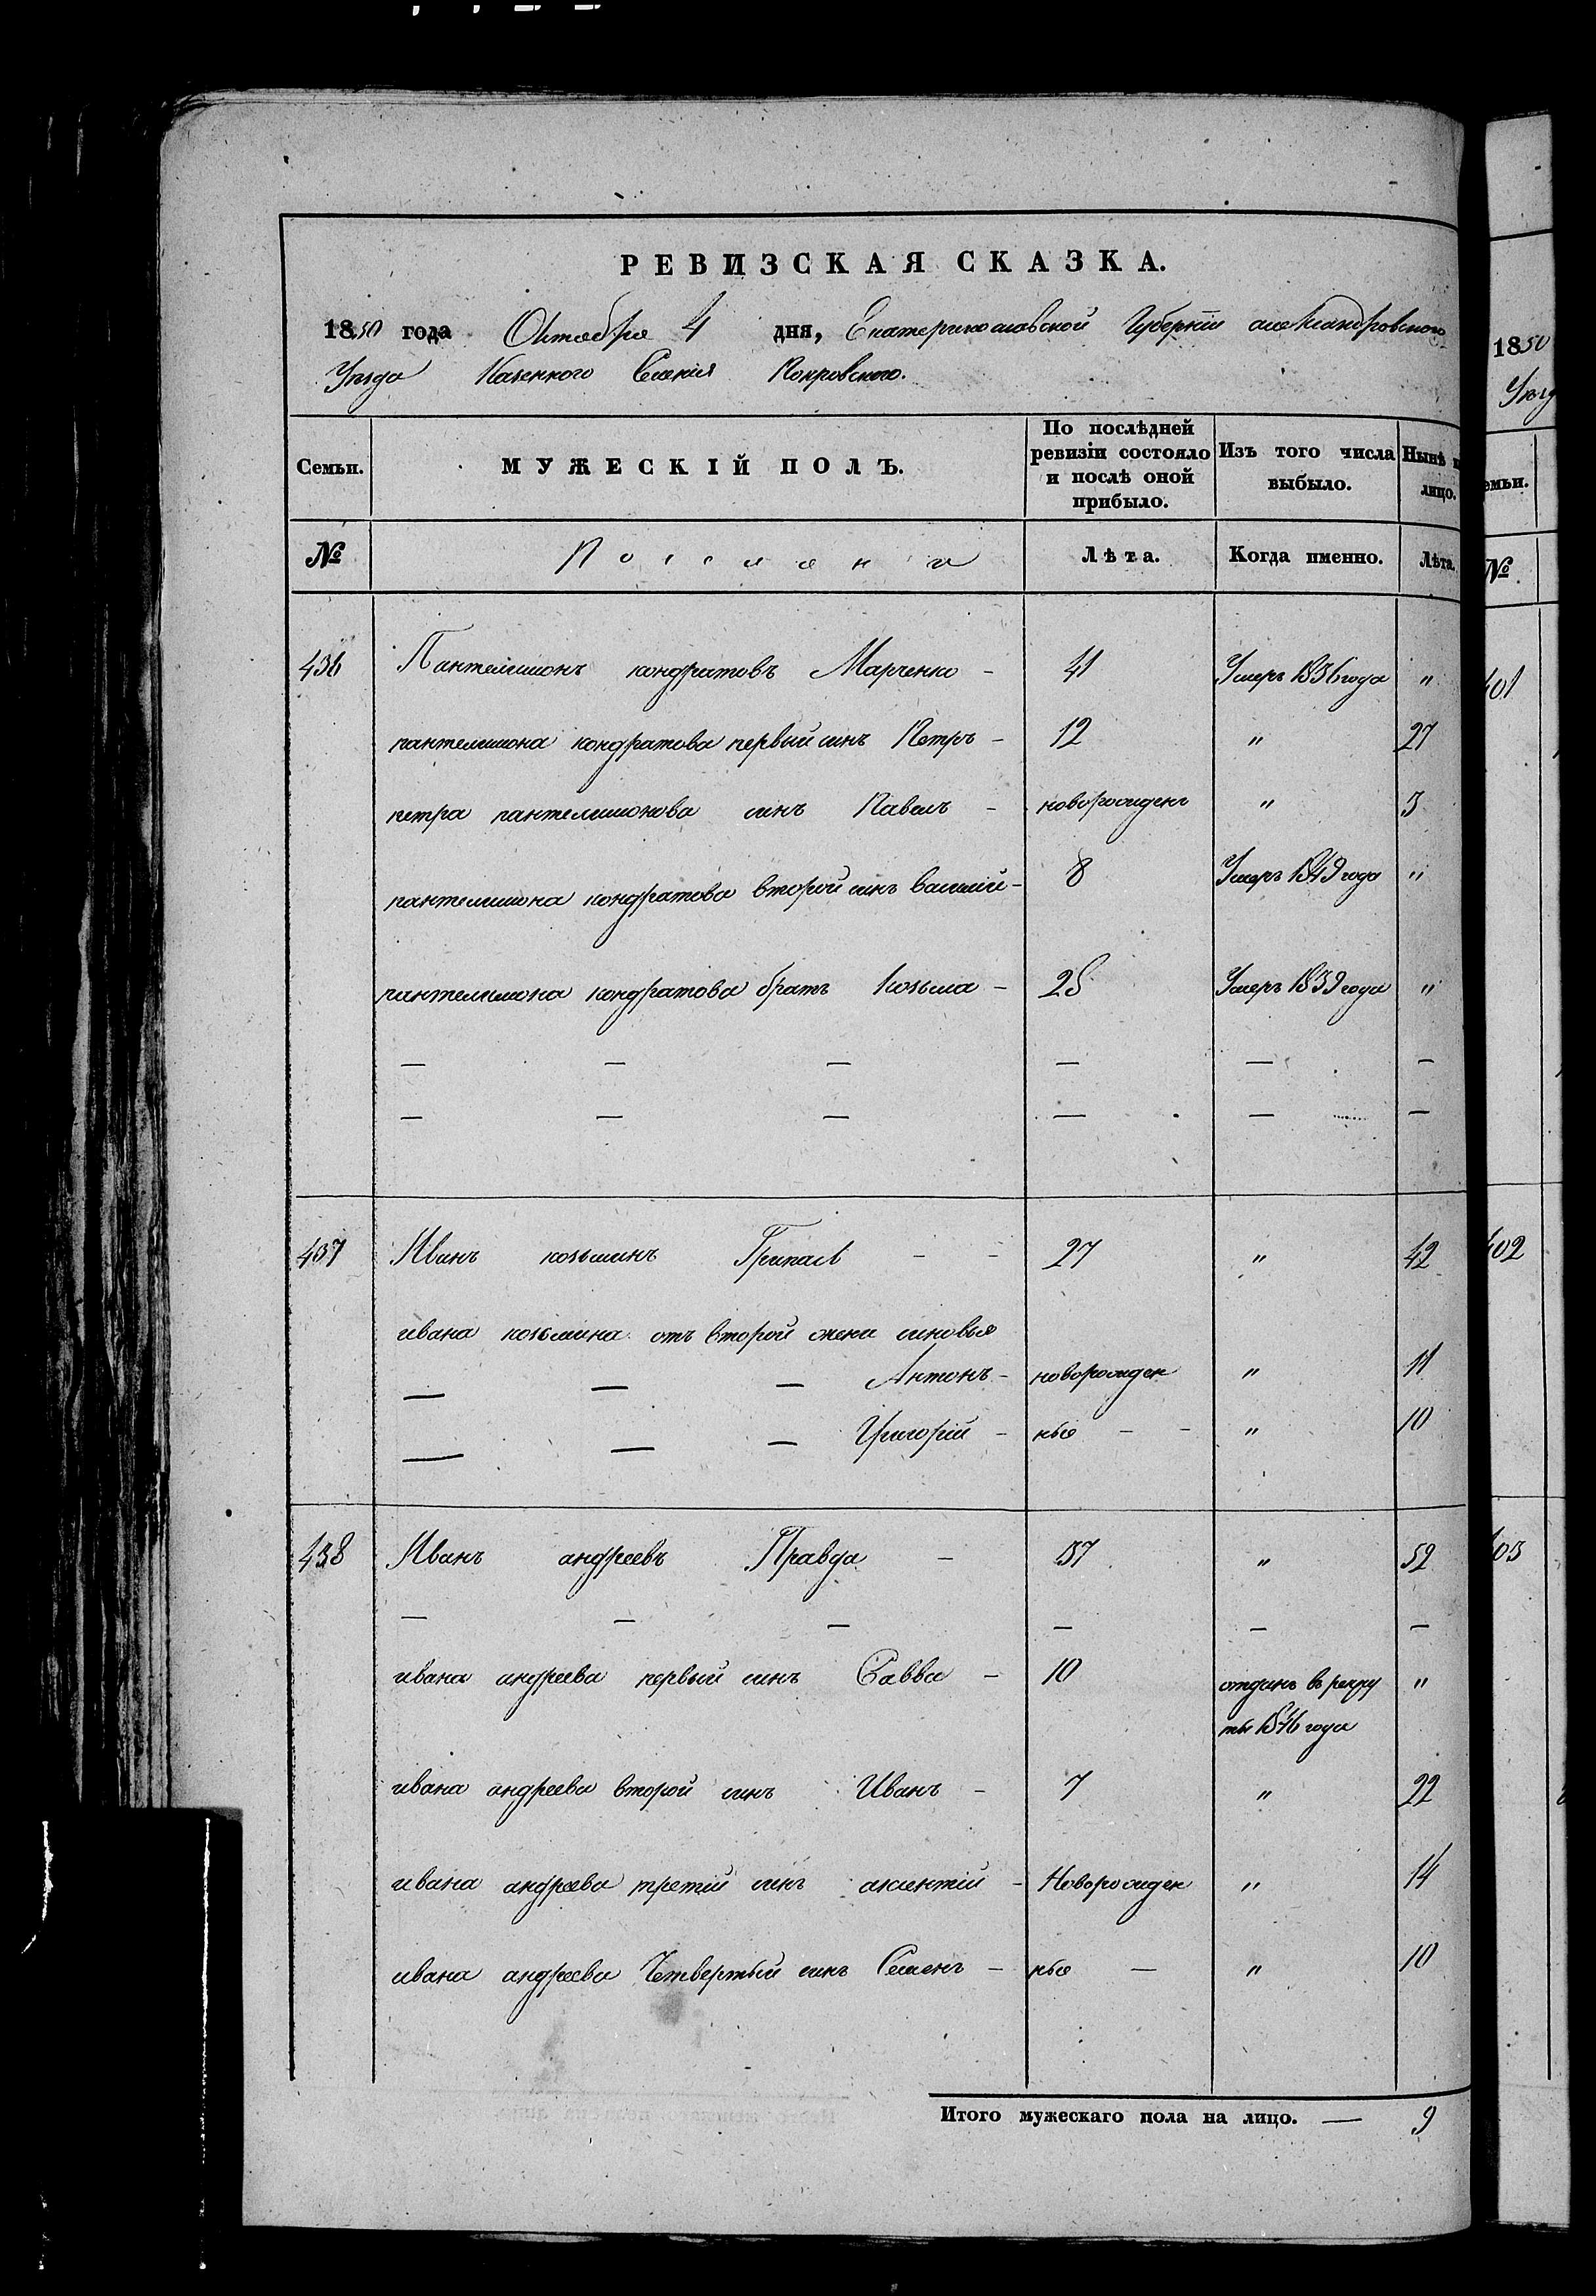 РЕВИЗСКАЯ СКАЗКА.
1850 года Октября 4 дня, Екатеринославской Губернiи александровского
Уѣзда Казенного Селенiя Покровского.
Семьи. МУЖЕСКІЙ ПОЛЪ. По послѣдней ревизіи состояло и послѣ оной прибыло. Изъ того числа выбыло. Нынѣ лицо.
№ Поселяни Лѣта. Когда именно. Лѣта.
436 Пантелимонъ кондратовъ Марченко - 41 Умеръ 1836 года "
пантелимона кондратова первый синъ Петръ - 12 " 27
петра пантелимонова синъ Павелъ - новорожденъ " 3
пантелимона кондратова второй синъ василiй - 8 Умеръ 1849 года "
пантелимона кондратова братъ Козьма - 25 Умеръ 1839 года "
— — — — — —
— — — — — —
437 Иванъ козьминъ - - 27 " 42
ивана козьмина отъ второй жени синовья
— — — Антонъ - новорожден " 11
— — — Григорiй - ные - - " 10
438 Иванъ андреевъ Правда - 37 " 52
— — — — — —
ивана андреева первый синъ Савва - 10 отданъ в рекру "
ты 1846 года
ивана андреева второй синъ Иванъ - 7 " 22
ивана андреева третiй синъ - Новорожден " 14
ивана андреева Четвертый синъ Семенъ - ные — " 10
Итого мужескаго пола на лицо. — 9
1850
Уѣзд
емьи.
№
401
402
403